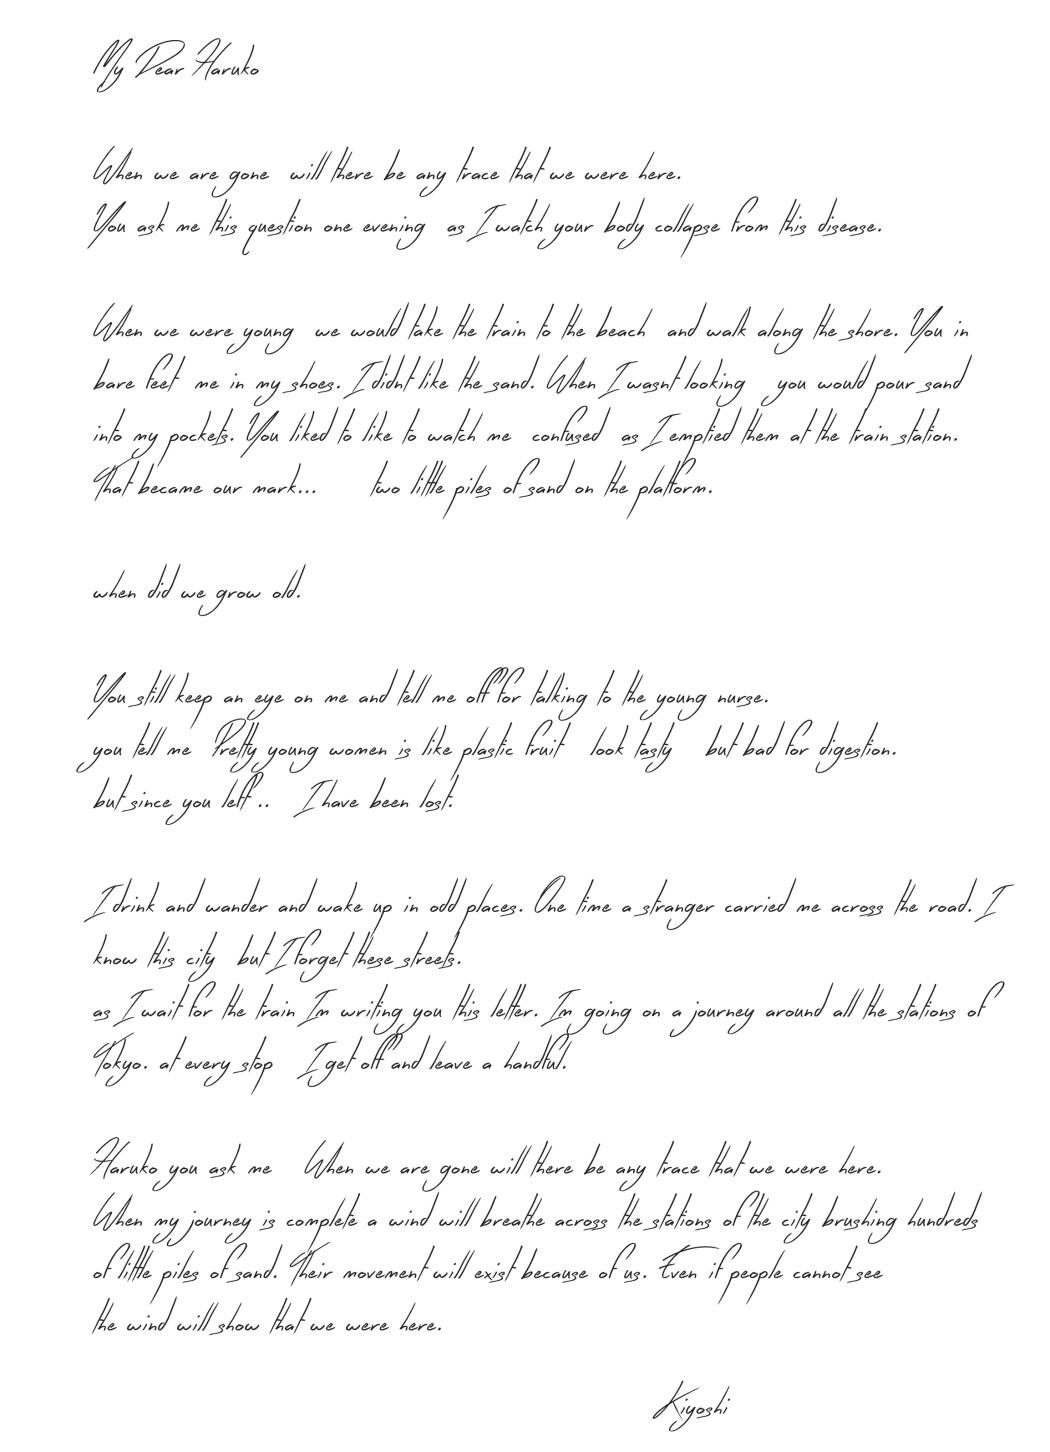 My Dear Haruko
When we are gone will there be any trace that we were here.
You ask me this question one evening as I watch your body collapse from this disease.
When we were young we would take the train to the beach and walk along the shore. You in
bare feet me in my shoes. I didnt like the sand. When I wasnt looking you would pour sand
into my pockets. You liked to like to watch me confused as I emptied them at the train station.
That became our mark... two little piles of sand on the platform.
when did we grow old.
You still keep an eye on me and tell me off for talking to the young nurse.
you tell me Pretty young women is like plastic fruit look tasty but bad for digestion.
but since you left .. I have been lost.
I drink and wander and wake up in odd places. One time a stranger carried me across the road. I
know this city but I forget these streets.
as I wait for the train Im writing you this letter. Im going on a journey around all the stations of
Tokyo. at every stop I get off and leave a handful.
Haruko you ask me When we are gone will there be any trace that we were here.
When my journey is complete a wind will breathe across the stations of the city brushing hundreds
of little piles of sand. Their movement will exist because of us. Even if people cannot see
the wind will show that we were here.
Kiyoshi